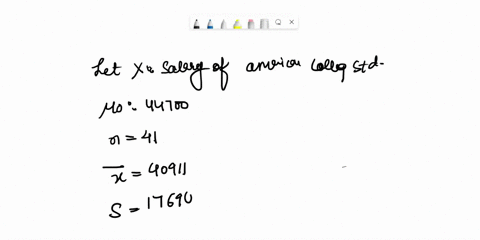 Let X: Salary of american colleg std.
μ0: 44700
n = 41
x̄ = 40911
S = 17690